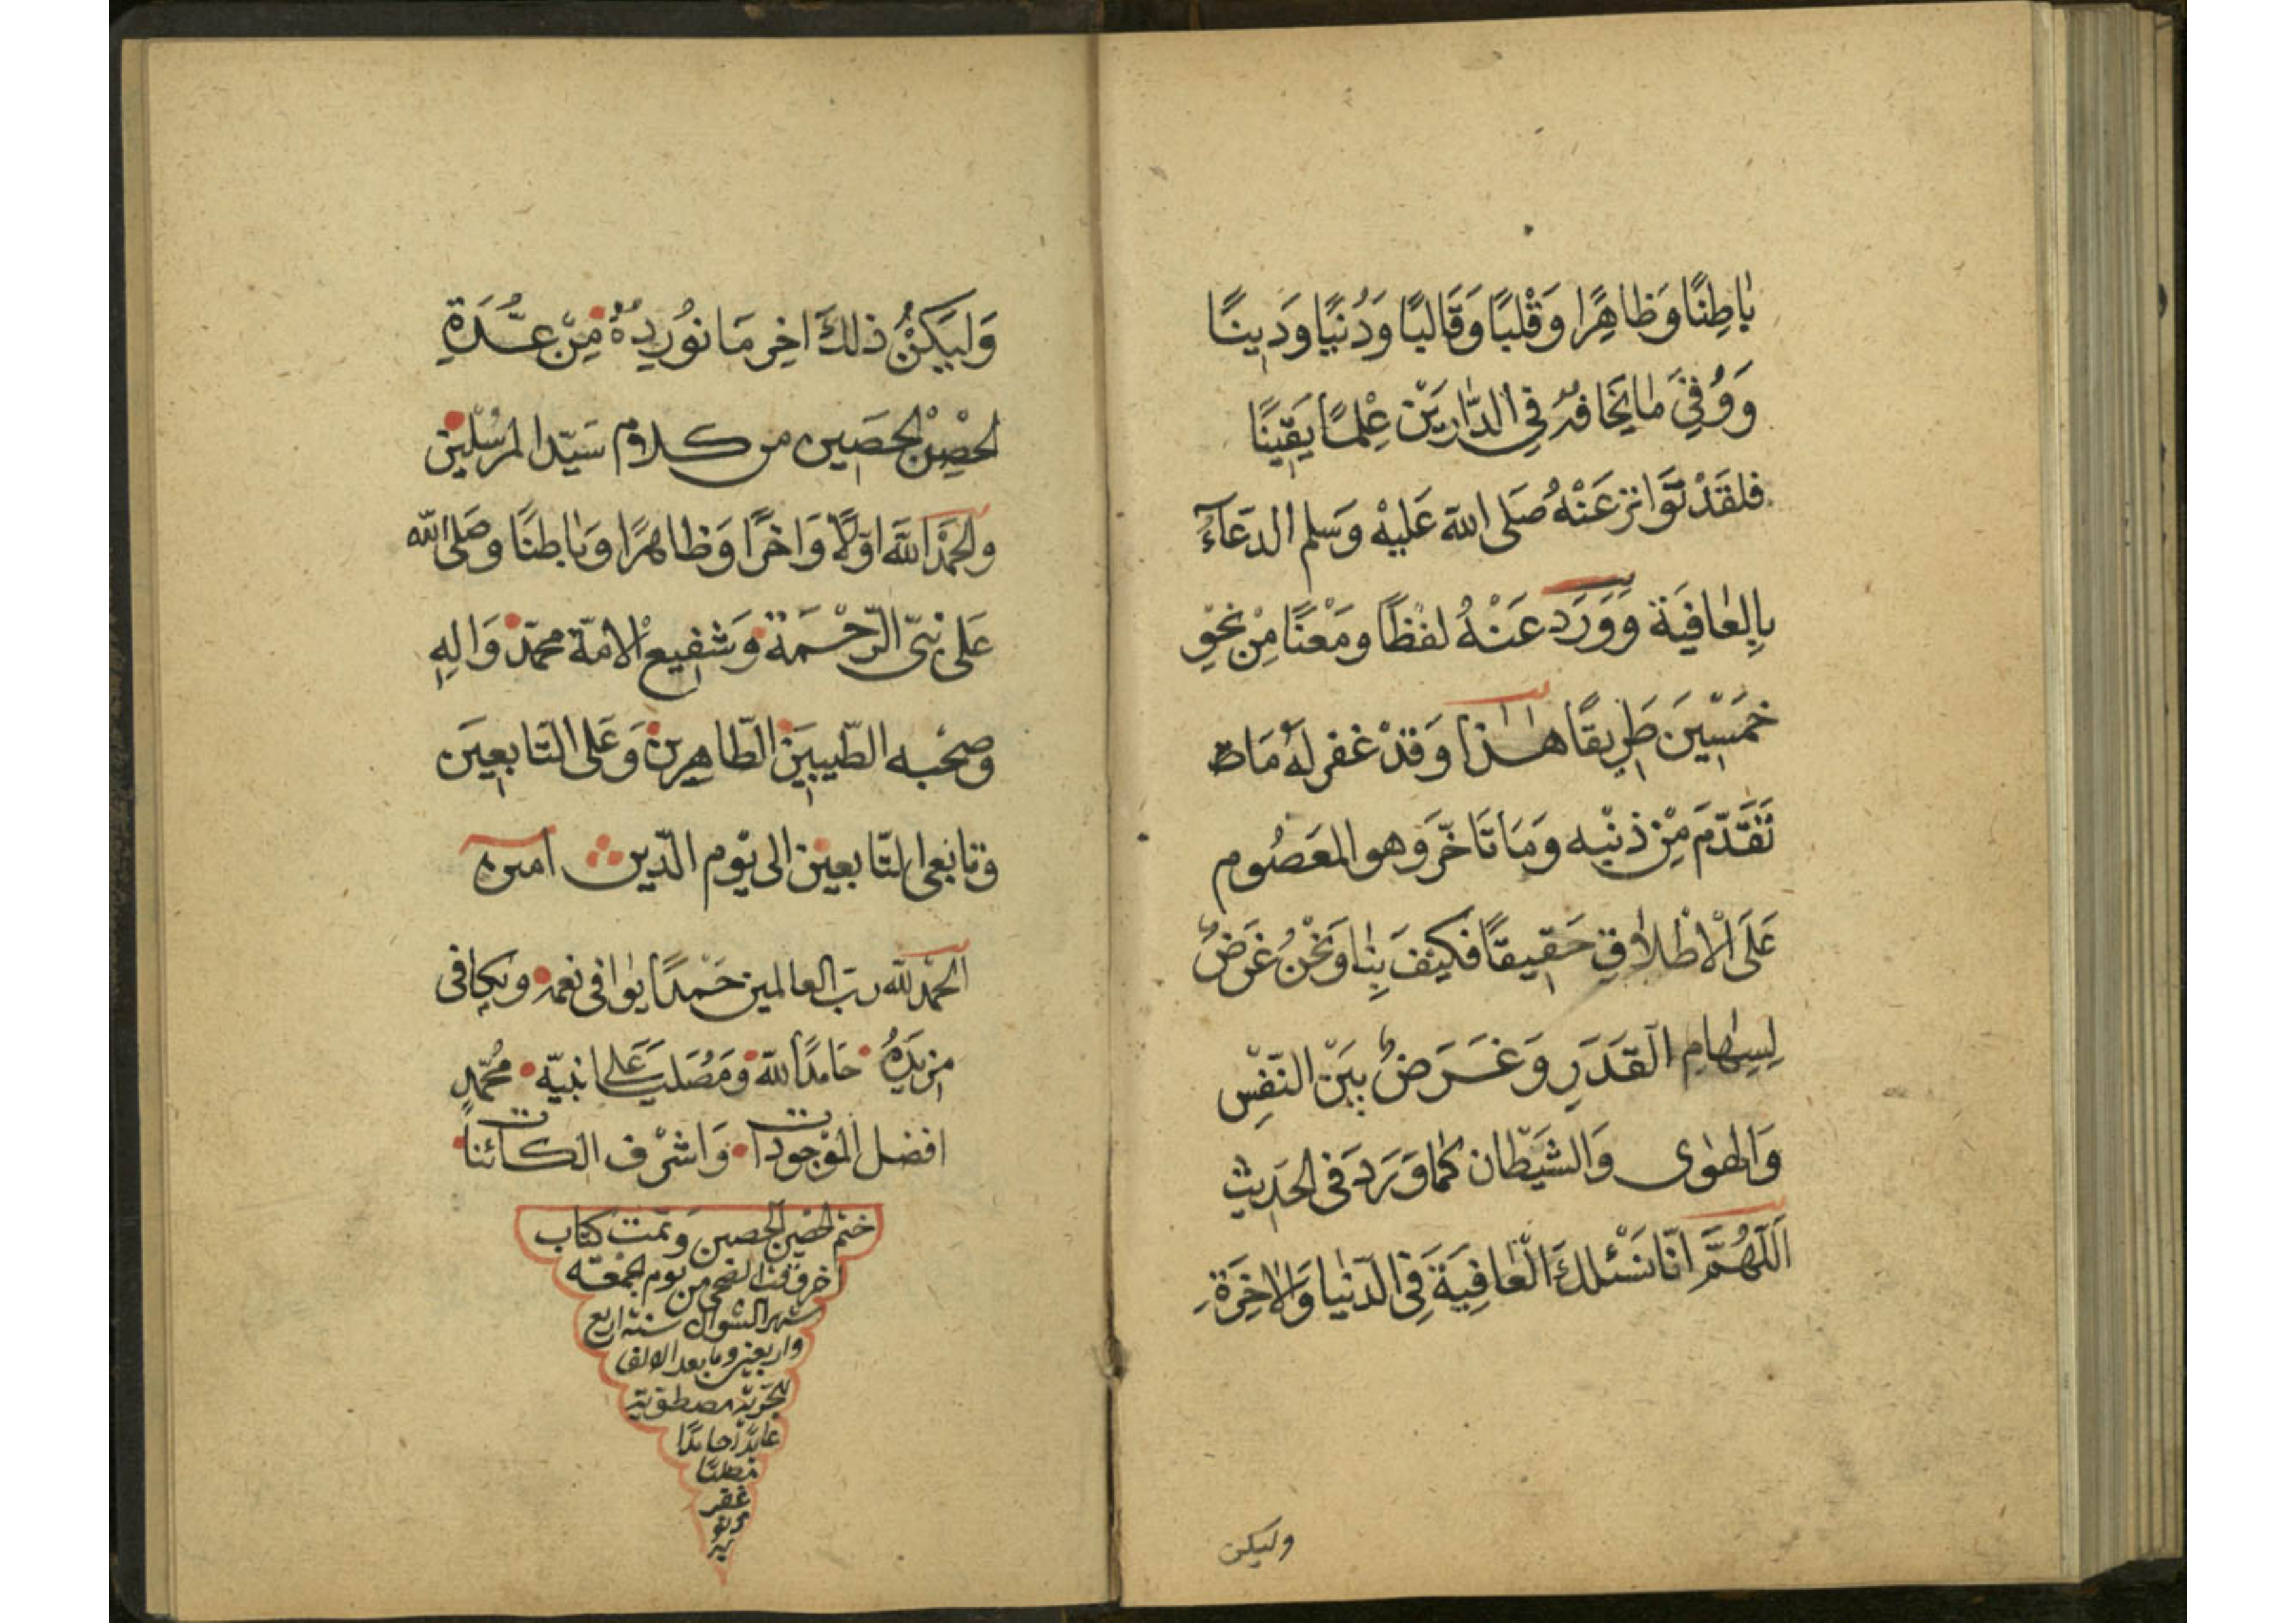 بَاطِنًا وَظَاهِرًا وَقَلْبًا وَقَالَبًا وَدُنْيًا وَدِينًا
وَوُقِيَ مَا يَخَافُهُ فِي الدَّارَيْنِ عِلْمًا يَقِينًا
فلقَدْ تَوَاتر عَنْهُ صَلى الله عَليْه وَسَلم الدّعَآءُ
بِالعَافِيَة وَوَرَدَ عَنْهُ لفْظًا ومَعْنًا مِنْ نحْوِ
خَمْسِينَ طَرِيقًا هٰذا وَقدْ غفر لهُ مَا
تَقَدَّمَ مِنْ ذنْبِه وَمَا تَاخَّرَ وهو المَعَصُوم
عَلَى الْاطْلاَقِ حَقِيقًا فَكيْفَ بِنَا وَنَحْنُ غَرَضٌ
لِسِهَامِ القَدَرِ وَغَرَضٌ بَيْنَ النّفْسِ
وَالهَوٰى وَالشَيْطَان كمَا وَرَدَ فى الحَدِيث
اَللّهُمَّ اِنّا نَسْئلكَ الْعَافِيَةَ فِى الدّنْيا وَالاخِرَةِ
وليكن
وَليَكنْ ذلكَ اخِر مَا نوُرِدهُ مِنْ عُدَّةِ
الحِصْنِ الحَصِين من كلاَم سَيّد المرسْلين
والحَمْد الله اوّلاً وَاخرًا وَظاهرًا وَبَاطنًا وصَلى الله
عَلى نبىّ الرّحْمَة وَشفِيع الامّة محمّد وَالِهِ
وصحْبه الطّيبِينَ الطّاهِرين وَعَلى التّابعِينَ
وتابعى التّابعِين الى يَوْم الدّين امين
الحَمْد لله ربّ العالمين حَمْدًا يوافى نعمه ويكافى
مزيدَهُ حَامدًا لله ومُصَليًا عَلى نبيّه محُمّدٍ
افضل الموْجودات وَاشرْف الكائنات
ختم الحصن الحصين وتمت كتاب
اخر وقت الضحى من يوم الجمعَه
شهر الشوال سنة اربع
واربعين وما بعد الالف
عابدًا حامدًا